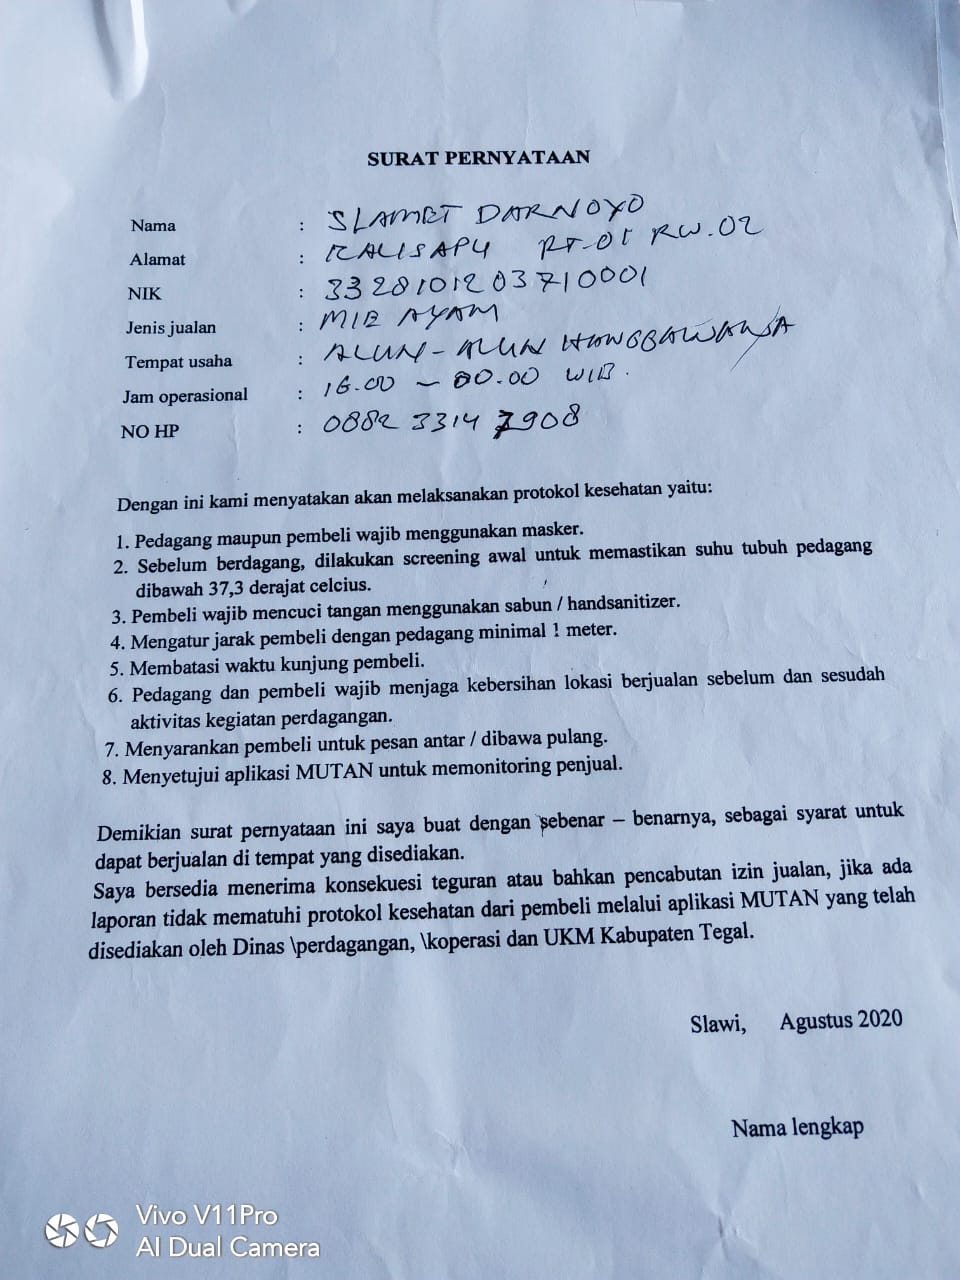 SURAT PERNYATAAN
Nama : SLAMET DARNOYO
Alamat : KALISAPU RT-01 RW.02
NIK : 3328101203710001
Jenis jualan : MIE AYAM
Tempat usaha : ALUN-ALUN HANGGAWANSA
Jam operasional : 16.00 ~ 00.00 WIB.
NO HP : 0882 3314 7908
Dengan ini kami menyatakan akan melaksanakan protokol kesehatan yaitu:
1. Pedagang maupun pembeli wajib menggunakan masker.
2. Sebelum berdagang, dilakukan screening awal untuk memastikan suhu tubuh pedagang
dibawah 37,3 derajat celcius.
3. Pembeli wajib mencuci tangan menggunakan sabun / handsanitizer.
4. Mengatur jarak pembeli dengan pedagang minimal ! meter.
5. Membatasi waktu kunjung pembeli.
6. Pedagang dan pembeli wajib menjaga kebersihan lokasi berjualan sebelum dan sesudah
aktivitas kegiatan perdagangan.
7. Menyarankan pembeli untuk pesan antar / dibawa pulang.
8. Menyetujui aplikasi MUTAN untuk memonitoring penjual.
Demikian surat pernyataan ini saya buat dengan sebenar – benarnya, sebagai syarat untuk
dapat berjualan di tempat yang disediakan.
Saya bersedia menerima konsekuesi teguran atau bahkan pencabutan izin jualan, jika ada
laporan tidak mematuhi protokol kesehatan dari pembeli melalui aplikasi MUTAN yang telah
disediakan oleh Dinas \perdagangan, \koperasi dan UKM Kabupaten Tegal.
Slawi, Agustus 2020
Nama lengkap
Vivo V11Pro
AI Dual Camera